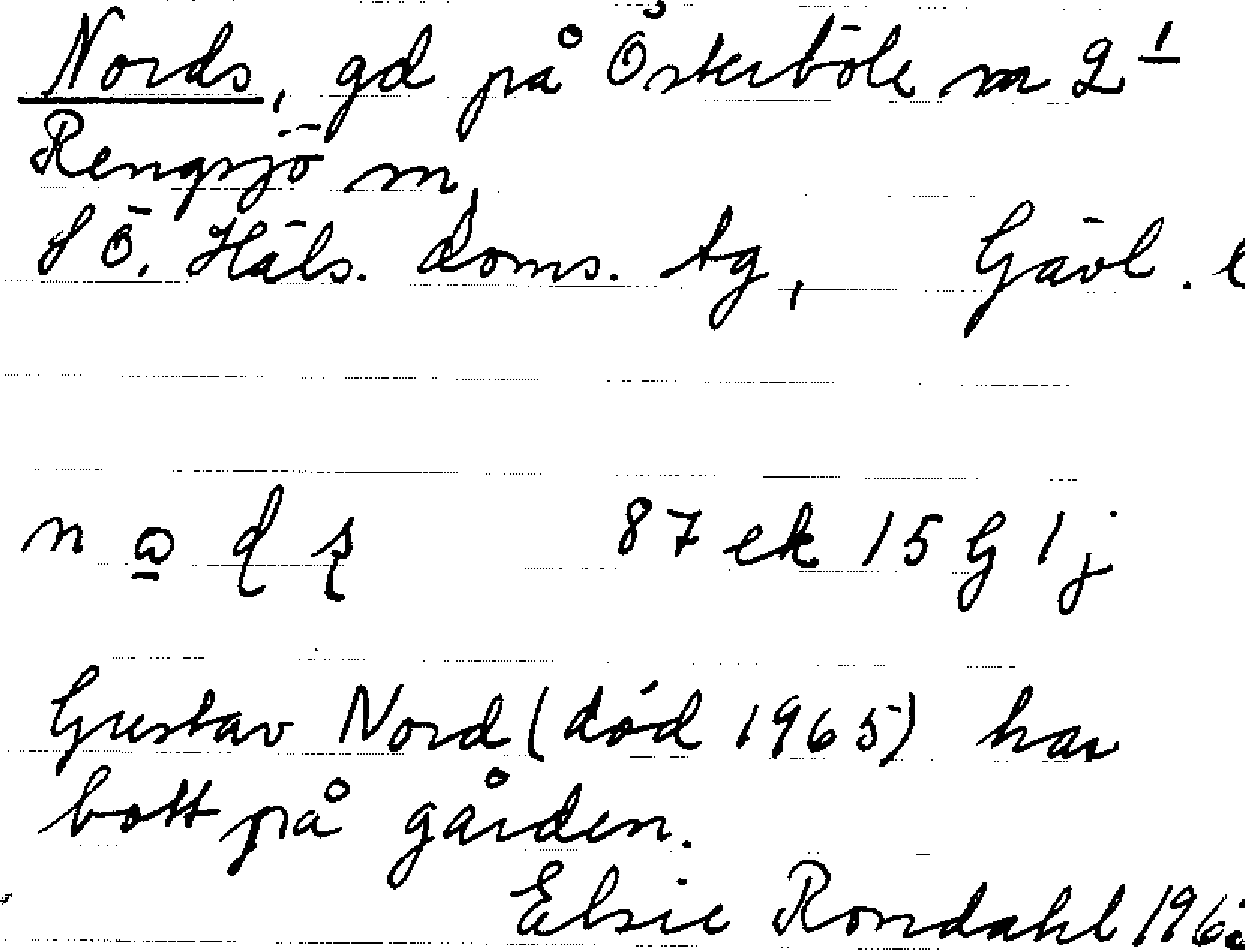 Nords, gd på Österböle m 2 1
Rengsjö m,
SÖ. Häls. doms. tg, Gävl. l
n a d s 87 ek 15 G 1 j
Gustav Nord (död 1965) har
bott på gården.
Elsie Rondahl 196